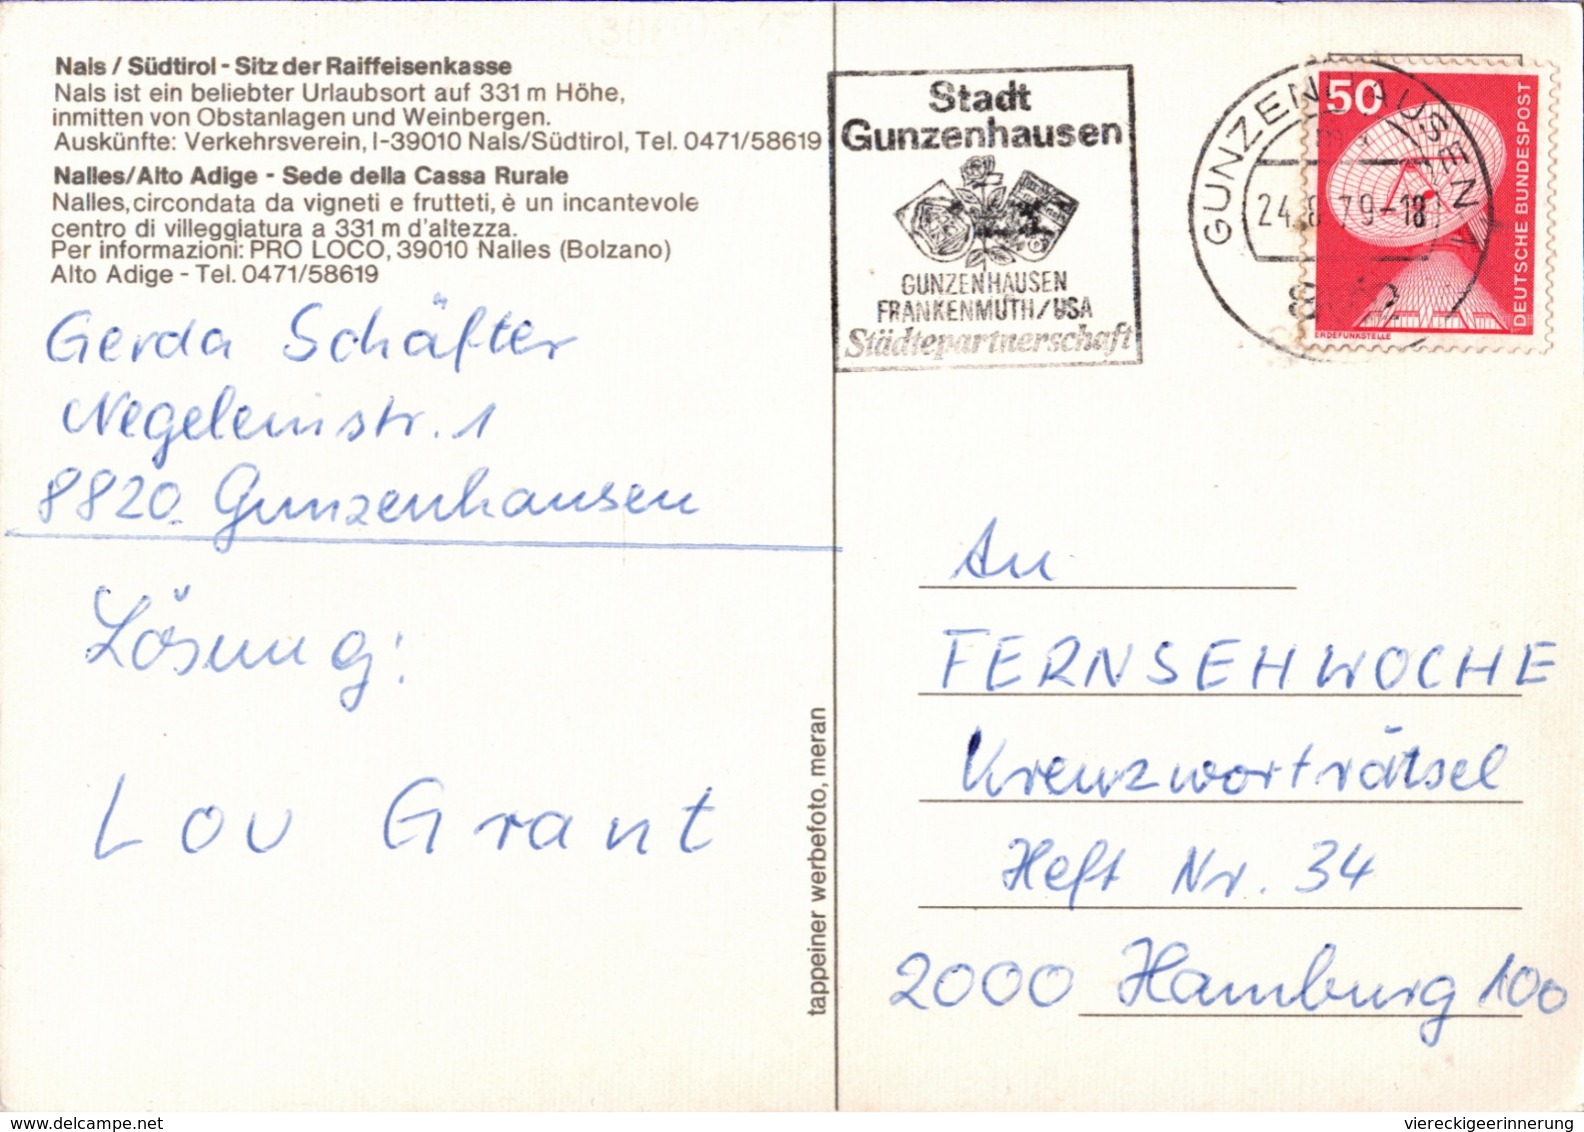 Nals / Südtirol - Sitz der Raiffeisenkasse
Nals ist ein beliebter Urlaubsort auf 331 m Höhe,
inmitten von Obstanlagen und Weinbergen.
Auskünfte: Verkehrsverein, I-39010 Nals/Südtirol, Tel. 0471/58619
Nalles/Alto Adige - Sede della Cassa Rurale
Nalles, circondata da vigneti e frutteti, è un incantevole
centro di villeggiatura a 331 m d'altezza.
Per informazioni: PRO LOCO, 39010 Nalles (Bolzano)
Alto Adige - Tel. 0471/58619
Gerda Schäfter
Negeleinstr. 1
8820 Gunzenhausen
Lösung:
Lou Grant
tappeiner werbefoto, meran
Stadt
Gunzenhausen
GUNZENHAUSEN
FRANKENMUTH/USA
Städtepartnerschaft
GUNZENHAUSEN 1
24.8.79-18
50
DEUTSCHE BUNDESPOST
ERDEFUNKSTELLE
An
FERNSEHWOCHE
Kreuzworträtsel
Heft Nr. 34
2000 Hamburg 100
www.delcampe.net
viereckigeerinnerung